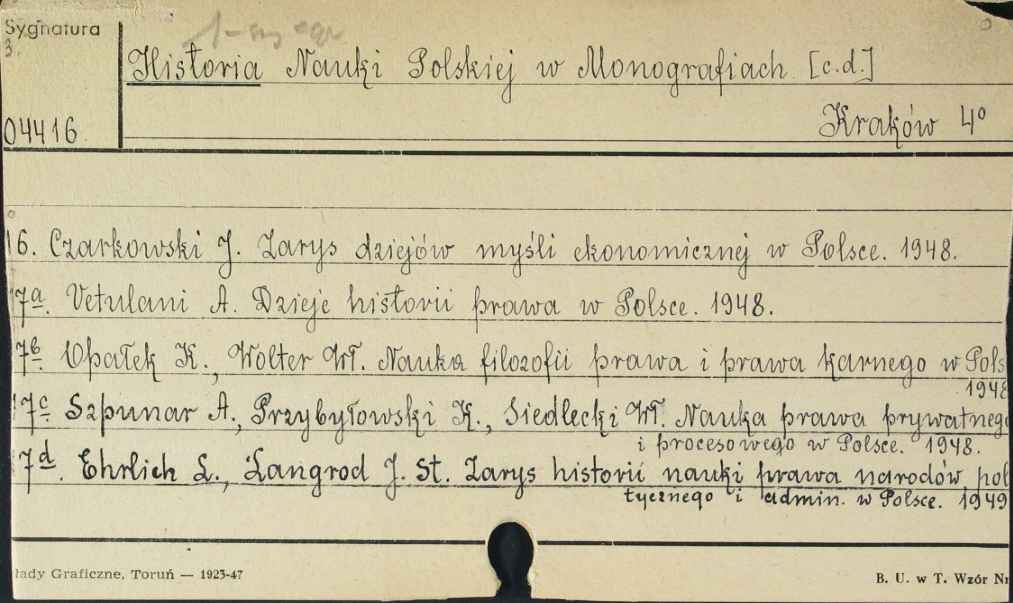 Sygnatura
3.
Historia Nauki Polskiej w Monografiach [c.d.]
04416
Kraków 4°
16. Czarkowski J. Zarys dziejów myśli ekonomicznej w Polsce. 1948.
17a. Vetulani A. Dzieje historii prawa w Polsce. 1948.
17b. Opałek K., Wolter Wł. Nauka filozofii prawa i prawa karnego w Pols
1948
17c Szpunar A., Przybyłowski K., Siedlecki Wł. Nauka prawa prywatnego
i procesowego w Polsce. 1948.
17d. Ehrlich L., Langrod J. St. Zarys historii nauki prawa narodów, pol
tycznego i admin. w Polsce. 1949
łady Graficzne, Toruń — 1923-47
B. U. w T. Wzór Nr